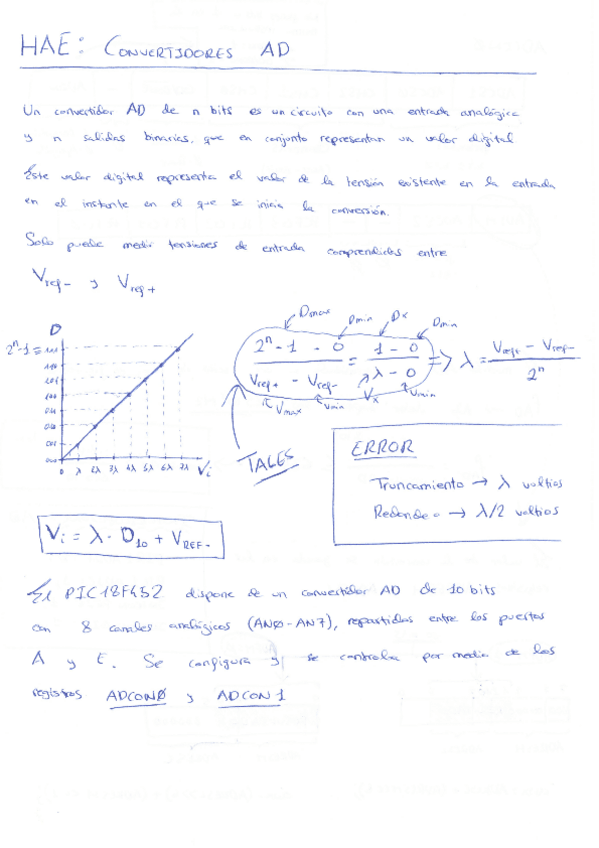 HAE: CONVERTIDORES AD
Un convertidor AD de n bits es un circuito con una entrada analógica
y n salidas binarias, que en conjunto representan un valor digital
Este valor digital representa el valor de la tensión existente en la entrada
en el instante en el que se inicia la conversión.
Solo puede medir tensiones de entrada comprendidas entre
Vref- y Vref+
D
2^n-1 =
111
110
101
100
011
010
001
000
0 λ 2λ 3λ 4λ 5λ 6λ 7λ Vi
Dmax Dmin Dx Dmin
2^n - 1 - 0 / Vref+ - Vref- = 1 - 0 / λ - 0 => λ = Vref+ - Vref- / 2^n
Vmax Vmin Vx Vmin
TALES
ERROR
Truncamiento → λ voltios
Redondeo → λ/2 voltios
Vi = λ · D10 + VREF-
El PIC18F452 dispone de un convertidor AD de 10 bits
con 8 canales analógicos (AN0-AN7), repartidos entre los puertos
A y E. Se configura y se controla por medio de los
registros ADCON0 y ADCON1